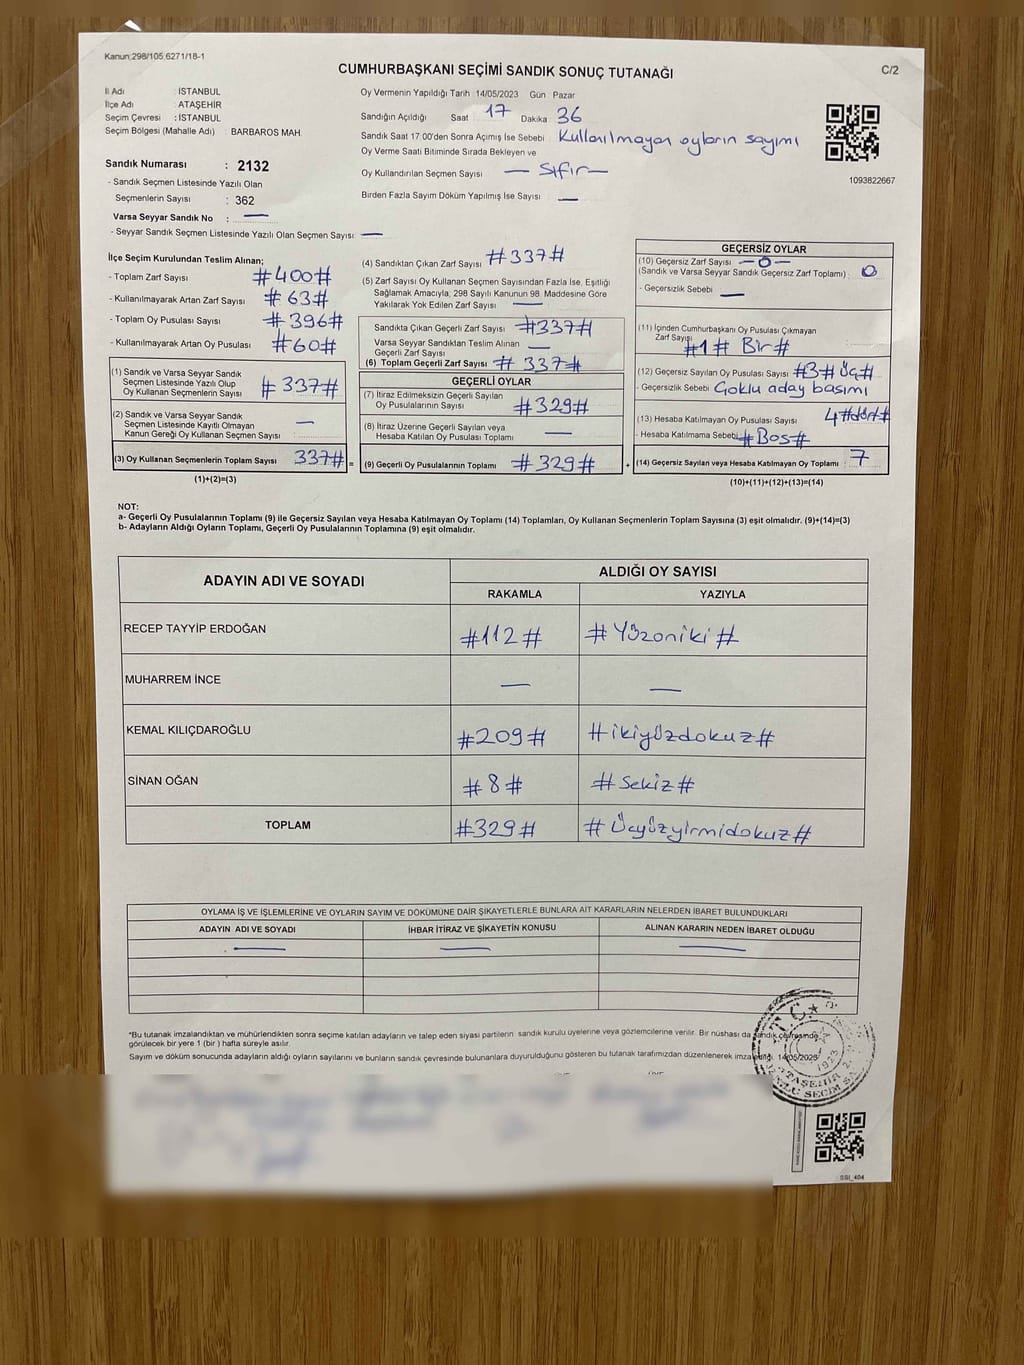 Kanun:298/105;6271/18-1
CUMHURBAŞKANI SEÇİMİ SANDIK SONUÇ TUTANAĞI
C/2
İl Adı : İSTANBUL
İlçe Adı : ATAŞEHİR
Seçim Çevresi : İSTANBUL
Seçim Bölgesi (Mahalle Adı) : BARBAROS MAH.
Sandık Numarası : 2132
- Sandık Seçmen Listesinde Yazılı Olan
Seçmenlerin Sayısı : 362
Varsa Seyyar Sandık No : —
- Seyyar Sandık Seçmen Listesinde Yazılı Olan Seçmen Sayısı: —
Oy Vermenin Yapıldığı Tarih 14/05/2023 Gün Pazar
Sandığın Açıldığı Saat 17 Dakika 36
Sandık Saat 17:00'den Sonra Açımış İse Sebebi Kullanılmayan oyların sayımı
Oy Verme Saati Bitiminde Sırada Bekleyen ve
Oy Kullandırılan Seçmen Sayısı — Sıfır —
Birden Fazla Sayım Döküm Yapılmış İse Sayısı —
1093822667
İlçe Seçim Kurulundan Teslim Alınan;
- Toplam Zarf Sayısı #400#
- Kullanılmayarak Artan Zarf Sayısı #63#
- Toplam Oy Pusulası Sayısı #396#
- Kullanılmayarak Artan Oy Pusulası #60#
(1) Sandık ve Varsa Seyyar Sandık
Seçmen Listesinde Yazılı Olup
Oy Kullanan Seçmenlerin Sayısı #337#
(2) Sandık ve Varsa Seyyar Sandık
Seçmen Listesinde Kayıtlı Olmayan
Kanun Gereği Oy Kullanan Seçmen Sayısı —
(3) Oy Kullanan Seçmenlerin Toplam Sayısı 337# =
(1)+(2)=(3)
(4) Sandıktan Çıkan Zarf Sayısı #337#
(5) Zarf Sayısı Oy Kullanan Seçmen Sayısından Fazla İse, Eşitliği
Sağlamak Amacıyla, 298 Sayılı Kanunun 98. Maddesine Göre
Yakılarak Yok Edilen Zarf Sayısı —
Sandıkta Çıkan Geçerli Zarf Sayısı #337#
Varsa Seyyar Sandıktan Teslim Alınan
Geçerli Zarf Sayısı —
(6) Toplam Geçerli Zarf Sayısı #337#
GEÇERLİ OYLAR
(7) İtiraz Edilmeksizin Geçerli Sayılan
Oy Pusulalarının Sayısı #329#
(8) İtiraz Üzerine Geçerli Sayılan veya
Hesaba Katılan Oy Pusulası Toplamı —
(9) Geçerli Oy Pusulalarının Toplamı #329# +
GEÇERSİZ OYLAR
(10) Geçersiz Zarf Sayısı —0—
(Sandık ve Varsa Seyyar Sandık Geçersiz Zarf Toplamı) : 0
- Geçersizlik Sebebi —
(11) İçinden Cumhurbaşkanı Oy Pusulası Çıkmayan
Zarf Sayısı #1# Bir#
(12) Geçersiz Sayılan Oy Pusulası Sayısı #3# Üç#
- Geçersizlik Sebebi Çoklu aday basımı
(13) Hesaba Katılmayan Oy Pusulası Sayısı 4#dört#
- Hesaba Katılmama Sebebi #Boş#
(14) Geçersiz Sayılan veya Hesaba Katılmayan Oy Toplamı : 7
(10)+(11)+(12)+(13)=(14)
NOT:
a- Geçerli Oy Pusulalarının Toplamı (9) ile Geçersiz Sayılan veya Hesaba Katılmayan Oy Toplamı (14) Toplamları, Oy Kullanan Seçmenlerin Toplam Sayısına (3) eşit olmalıdır. (9)+(14)=(3)
b- Adayların Aldığı Oyların Toplamı, Geçerli Oy Pusulalarının Toplamına (9) eşit olmalıdır.
ADAYIN ADI VE SOYADI
ALDIĞI OY SAYISI
RAKAMLA YAZIYLA
RECEP TAYYİP ERDOĞAN #112# #Yüzoniki#
MUHARREM İNCE — —
KEMAL KILIÇDAROĞLU #209# #ikiyüzdokuz#
SİNAN OĞAN #8# #Sekiz#
TOPLAM #329# #Üçyüzyirmidokuz#
OYLAMA İŞ VE İŞLEMLERİNE VE OYLARIN SAYIM VE DÖKÜMÜNE DAİR ŞİKAYETLERLE BUNLARA AİT KARARLARIN NELERDEN İBARET BULUNDUKLARI
ADAYIN ADI VE SOYADI İHBAR İTİRAZ VE ŞİKAYETİN KONUSU ALINAN KARARIN NEDEN İBARET OLDUĞU
— — —
*Bu tutanak imzalandıktan ve mühürlendikten sonra seçime katılan adayların ve talep eden siyasi partilerin sandık kurulu üyelerine veya gözlemcilerine verilir. Bir nüshası da sandık çevresinde
görülecek bir yere 1 (bir) hafta süreyle asılır.
Sayım ve döküm sonucunda adayların aldığı oyların sayılarını ve bunların sandık çevresinde bulunanlara duyurulduğunu gösteren bu tutanak tarafımızdan düzenlenerek imza edildi. 14/05/2023
T.C.
1923
ATAŞEHİR 2.
SSİ_404